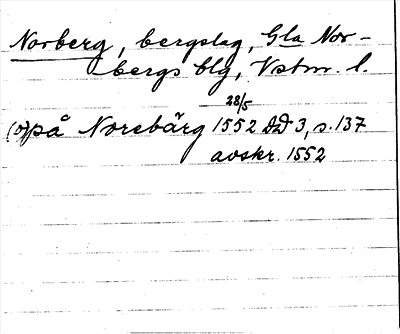 Norberg, bergslag, Gla Nor-
bergs blg, Vstm. l.
28/5
(o)på Norebärg 1552 DD 3, s. 137
avskr. 1552